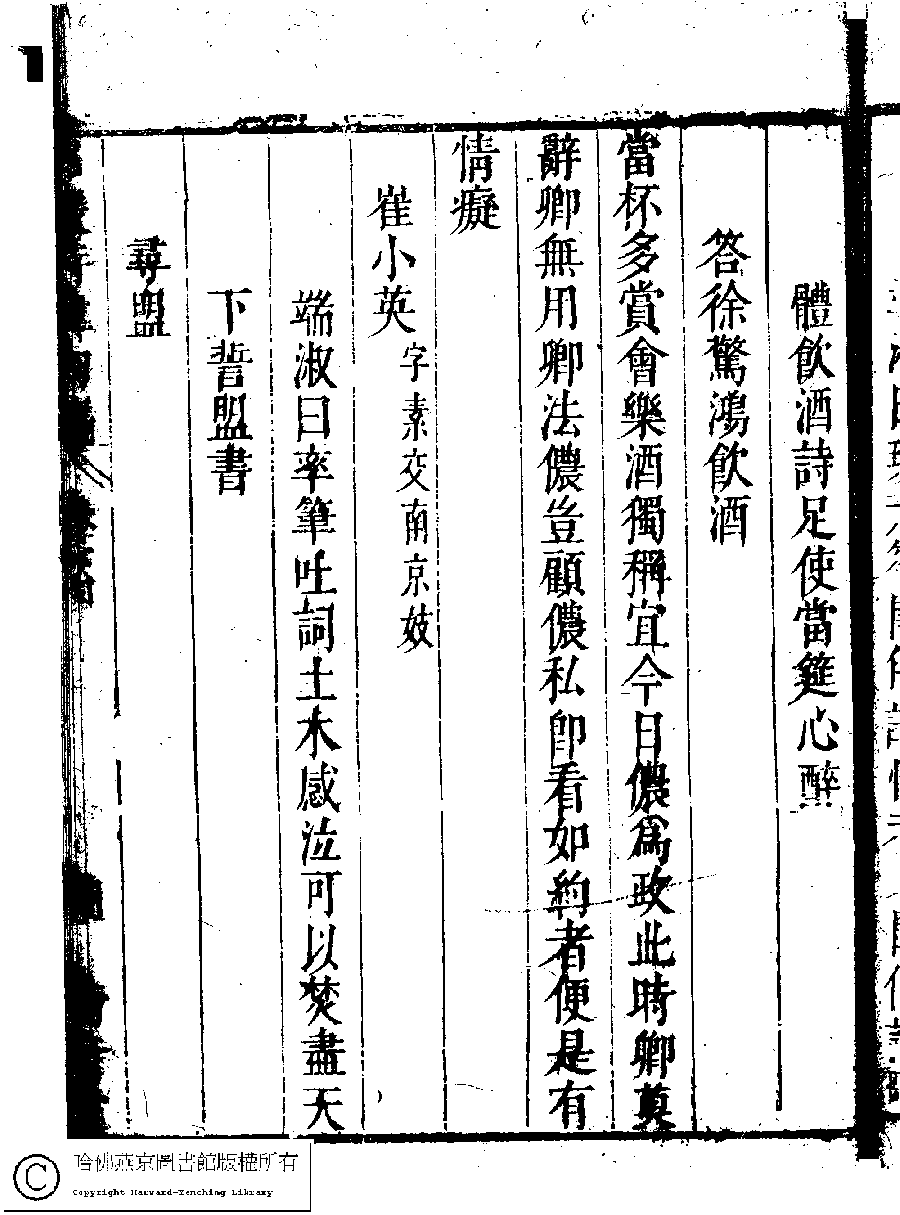 體飲酒詩足使當筵心醉
答徐驚鴻飲酒
當杯多賞會樂酒獨稱宜今日儂爲政此時卿莫
辭卿無用卿法儂豈顧儂私卽看如約者便是有
情癡
崔小英字素交南京妓
端淑曰率筆吐詞土木感泣可以焚盡天
下誓盟書
尋盟
哈佛燕京圖書館版權所有
Copyright Harvard-Yenching Library